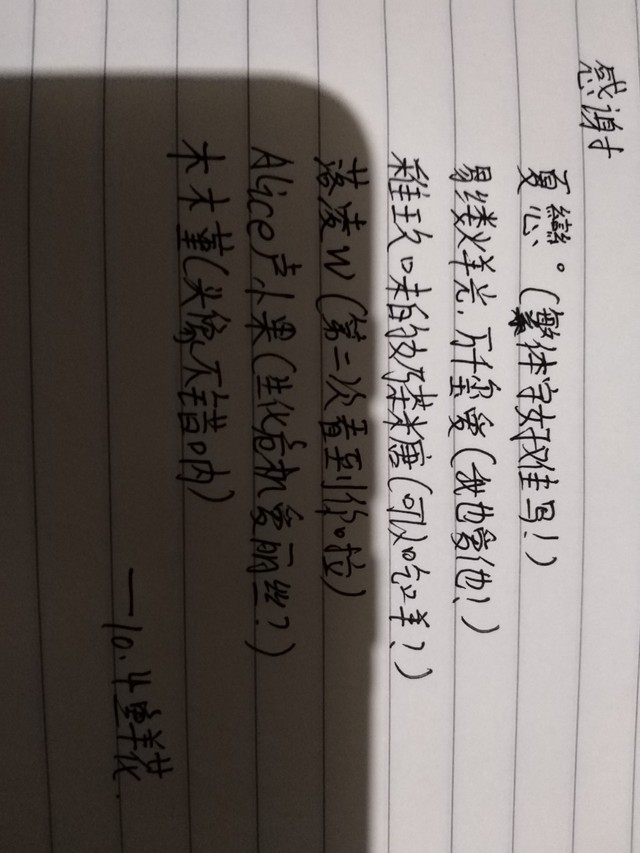 感谢
夏戀。(繁体字好难写!)
易缕烨光,所千玺爱(我也爱他!)
稚玖口味的奶茶糖(可以吃么羊?)
落凌W(第二次看到你啦)
Alice卢小果(生化危机爱丽丝?)
木木堇(头像不错呐)
—10.4鲜花